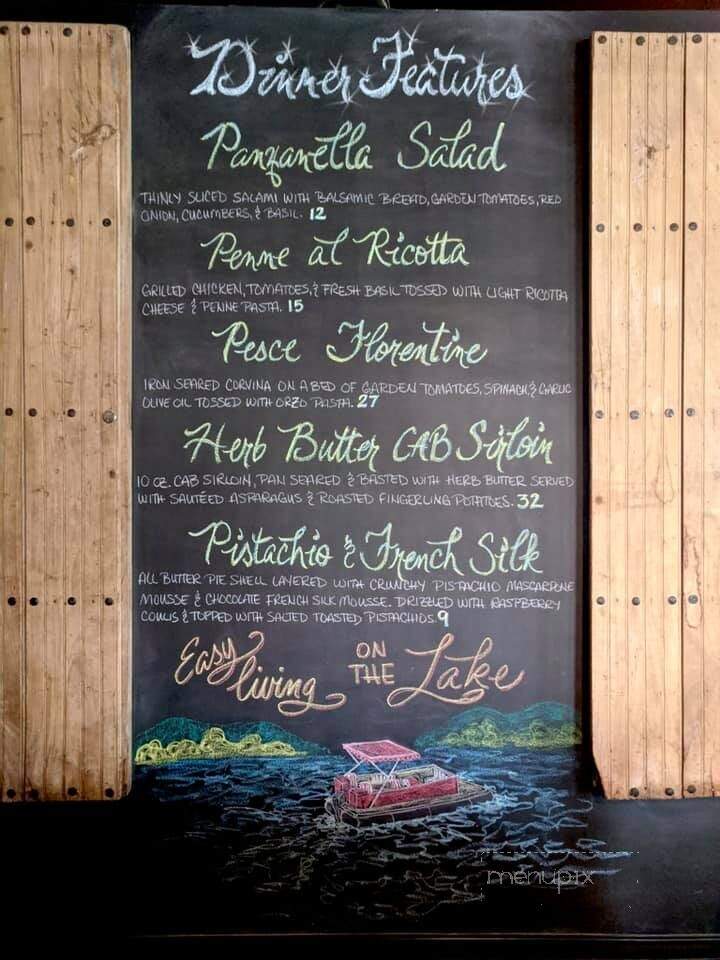 Dinner Features
Panzanella Salad
THINLY SLICED SALAMI WITH BALSAMIC BREAD, GARDEN TOMATOES, RED
ONION, CUCUMBERS, & BASIL. 12
Penne al Ricotta
GRILLED CHICKEN, TOMATOES, & FRESH BASIL TOSSED WITH LIGHT RICOTTA
CHEESE & PENNE PASTA. 15
Pesce Florentine
IRON SEARED CORVINA ON A BED OF GARDEN TOMATOES, SPINACH, & GARLIC
OLIVE OIL TOSSED WITH ORZO PASTA. 27
Herb Butter CAB Sirloin
10 OZ. CAB SIRLOIN, PAN SEARED & BASTED WITH HERB BUTTER SERVED
WITH SAUTÉED ASPARAGUS & ROASTED FINGERLING POTATOES. 32
Pistachio & French Silk
ALL BUTTER PIE SHELL LAYERED WITH CRUNCHY PISTACHIO MASCARPONE
MOUSSE & CHOCOLATE FRENCH SILK MOUSSE. DRIZZLED WITH RASPBERRY
COULIS & TOPPED WITH SALTED TOASTED PISTACHIOS. 9
Easy living ON THE Lake
menupix